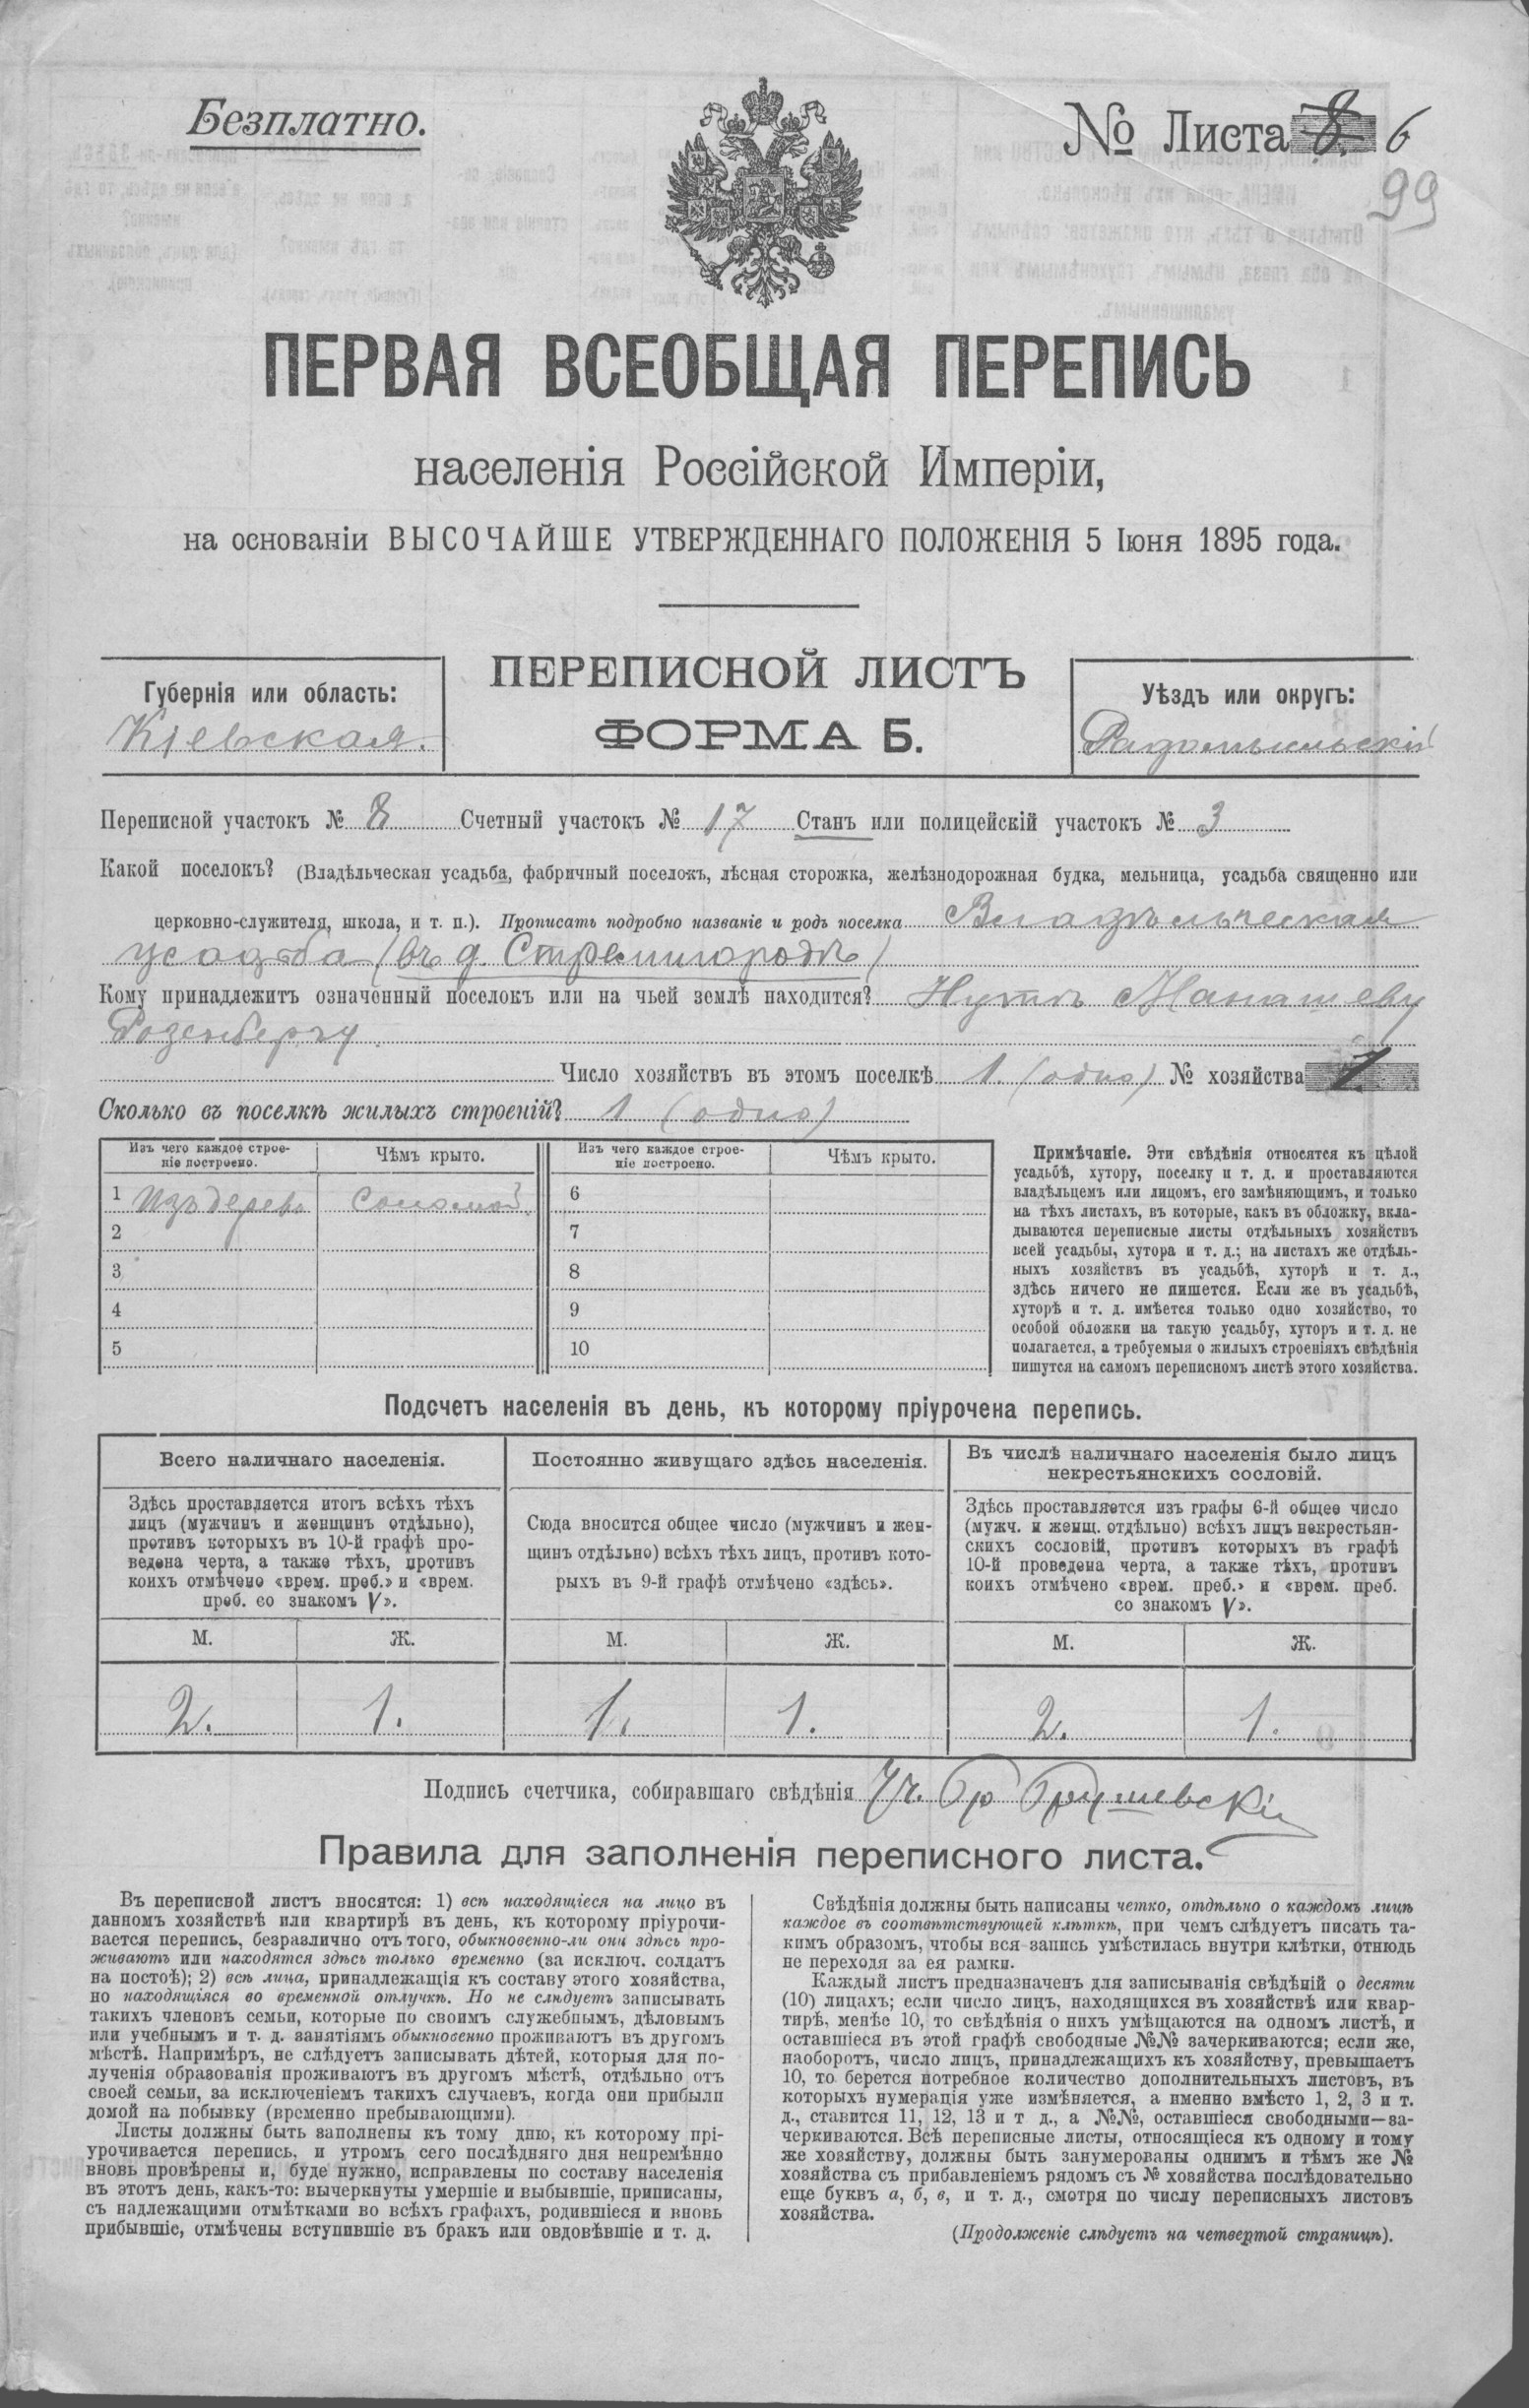 Безплатно.
№ Листа 8. 6
99
ПЕРВАЯ ВСЕОБЩАЯ ПЕРЕПИСЬ
населенія Россійской Имперіи,
на основаніи ВЫСОЧАЙШЕ УТВЕРЖДЕННАГО ПОЛОЖЕНІЯ 5 Іюня 1895 года.
Губернія или область:
Кіевская.
ПЕРЕПИСНОЙ ЛИСТЪ
ФОРМА Б.
Уѣздъ или округъ:
Радомысльскій
Переписной участокъ № 8 Счетный участокъ № 17 Станъ или полицейскій участокъ № 3
Какой поселокъ? (Владѣльческая усадьба, фабричный поселокъ, лѣсная сторожка, желѣзнодорожная будка, мельница, усадьба священно или
церковно-служителя, школа, и т. п.). Прописать подробно названіе и родъ поселка Владѣльческая
усадьба (въ д. Стремигородѣ)
Кому принадлежитъ означенный поселокъ или на чьей землѣ находится? Нутѣ Манашеву
Розенбергу.
Число хозяйствъ въ этомъ поселкѣ 1. (одно) № хозяйства 1.
Сколько въ поселкѣ жилыхъ строеній? 1 (одно)
Изъ чего каждое строе-
ніе построено.
Чѣмъ крыто.
Изъ чего каждое строе-
ніе построено.
Чѣмъ крыто.
1 Изъ дерева Соломой 6
2 7
3 8
4 9
5 10
Примѣчаніе. Эти свѣдѣнія относятся къ цѣлой
усадьбѣ, хутору, поселку и т. д. и проставляются
владѣльцемъ или лицомъ, его замѣняющимъ, и только
на тѣхъ листахъ, въ которые, какъ въ обложку, вкла-
дываются переписные листы отдѣльныхъ хозяйствъ
всей усадьбы, хутора и т. д.; на листахъ же отдѣль-
ныхъ хозяйствъ въ усадьбѣ, хуторѣ и т. д.,
здѣсь ничего не пишется. Если же въ усадьбѣ,
хуторѣ и т. д. имѣется только одно хозяйство, то
особой обложки на такую усадьбу, хуторъ и т. д. не
полагается, а требуемыя о жилыхъ строеніяхъ свѣдѣнія
пишутся на самомъ переписномъ листѣ этого хозяйства.
Подсчетъ населенія въ день, къ которому пріурочена перепись.
Всего наличнаго населенія.
Здѣсь проставляется итогъ всѣхъ тѣхъ
лицъ (мужчинъ и женщинъ отдѣльно),
противъ которыхъ въ 10-й графѣ про-
ведена черта, а также тѣхъ, противъ
коихъ отмѣчено «врем. преб.» и «врем.
преб. со знакомъ V».
М. Ж.
2. 1.
Постоянно живущаго здѣсь населенія.
Сюда вносится общее число (мужчинъ и жен-
щинъ отдѣльно) всѣхъ тѣхъ лицъ, противъ кото-
рыхъ въ 9-й графѣ отмѣчено «здѣсь».
М. Ж.
1. 1.
Въ числѣ наличнаго населенія было лицъ
некрестьянскихъ сословій.
Здѣсь проставляется изъ графы 6-й общее число
(мужч. и женщ. отдѣльно) всѣхъ лицъ некрестьян-
скихъ сословій, противъ которыхъ въ графѣ
10-й проведена черта, а также тѣхъ, противъ
коихъ отмѣчено «врем. преб.» и «врем. преб.
со знакомъ V».
М. Ж.
2. 1.
Подпись счетчика, собиравшаго свѣдѣнія Уч. Гр Грушевскій
Правила для заполненія переписного листа.
Въ переписной листъ вносятся: 1) всѣ находящіеся на лицо въ
данномъ хозяйствѣ или квартирѣ въ день, къ которому пріурочи-
вается перепись, безразлично отъ того, обыкновенно-ли они здѣсь про-
живаютъ или находятся здѣсь только временно (за исключ. солдатъ
на постоѣ); 2) всѣ лица, принадлежащія къ составу этого хозяйства,
но находящіяся во временной отлучкѣ. Но не слѣдуетъ записывать
такихъ членовъ семьи, которые по своимъ служебнымъ, дѣловымъ
или учебнымъ и т. д. занятіямъ обыкновенно проживаютъ въ другомъ
мѣстѣ. Напримѣръ, не слѣдуетъ записывать дѣтей, которыя для по-
лученія образованія проживаютъ въ другомъ мѣстѣ, отдѣльно отъ
своей семьи, за исключеніемъ такихъ случаевъ, когда они прибыли
домой на побывку (временно пребывающими).
Листы должны быть заполнены къ тому дню, къ которому прі-
урочивается перепись, и утромъ сего послѣдняго дня непремѣнно
вновь провѣрены и, буде нужно, исправлены по составу населенія
въ этотъ день, какъ-то: вычеркнуты умершіе и выбывшіе, приписаны,
съ надлежащими отмѣтками во всѣхъ графахъ, родившіеся и вновь
прибывшіе, отмѣчены вступившіе въ бракъ или овдовѣвшіе и т. д.
Свѣдѣнія должны быть написаны четко, отдѣльно о каждомъ лицѣ
каждое въ соотвѣтствующей клѣткѣ, при чемъ слѣдуетъ писать та-
кимъ образомъ, чтобы вся запись умѣстилась внутри клѣтки, отнюдь
не переходя за ея рамки.
Каждый листъ предназначенъ для записыванія свѣдѣній о десяти
(10) лицахъ; если число лицъ, находящихся въ хозяйствѣ или квар-
тирѣ, менѣе 10, то свѣдѣнія о нихъ умѣщаются на одномъ листѣ, и
оставшіеся въ этой графѣ свободные №№ зачеркиваются; если же,
наоборотъ, число лицъ, принадлежащихъ къ хозяйству, превышаетъ
10, то берется потребное количество дополнительныхъ листовъ, въ
которыхъ нумерація уже измѣняется, а именно вмѣсто 1, 2, 3 и т.
д., ставится 11, 12, 13 и т д., а №№, оставшіеся свободными—за-
черкиваются. Всѣ переписные листы, относящіеся къ одному и тому
же хозяйству, должны быть занумерованы однимъ и тѣмъ же №
хозяйства съ прибавленіемъ рядомъ съ № хозяйства послѣдовательно
еще буквъ а, б, в, и т. д., смотря по числу переписныхъ листовъ
хозяйства.
(Продолженіе слѣдуетъ на четвертой страницѣ).